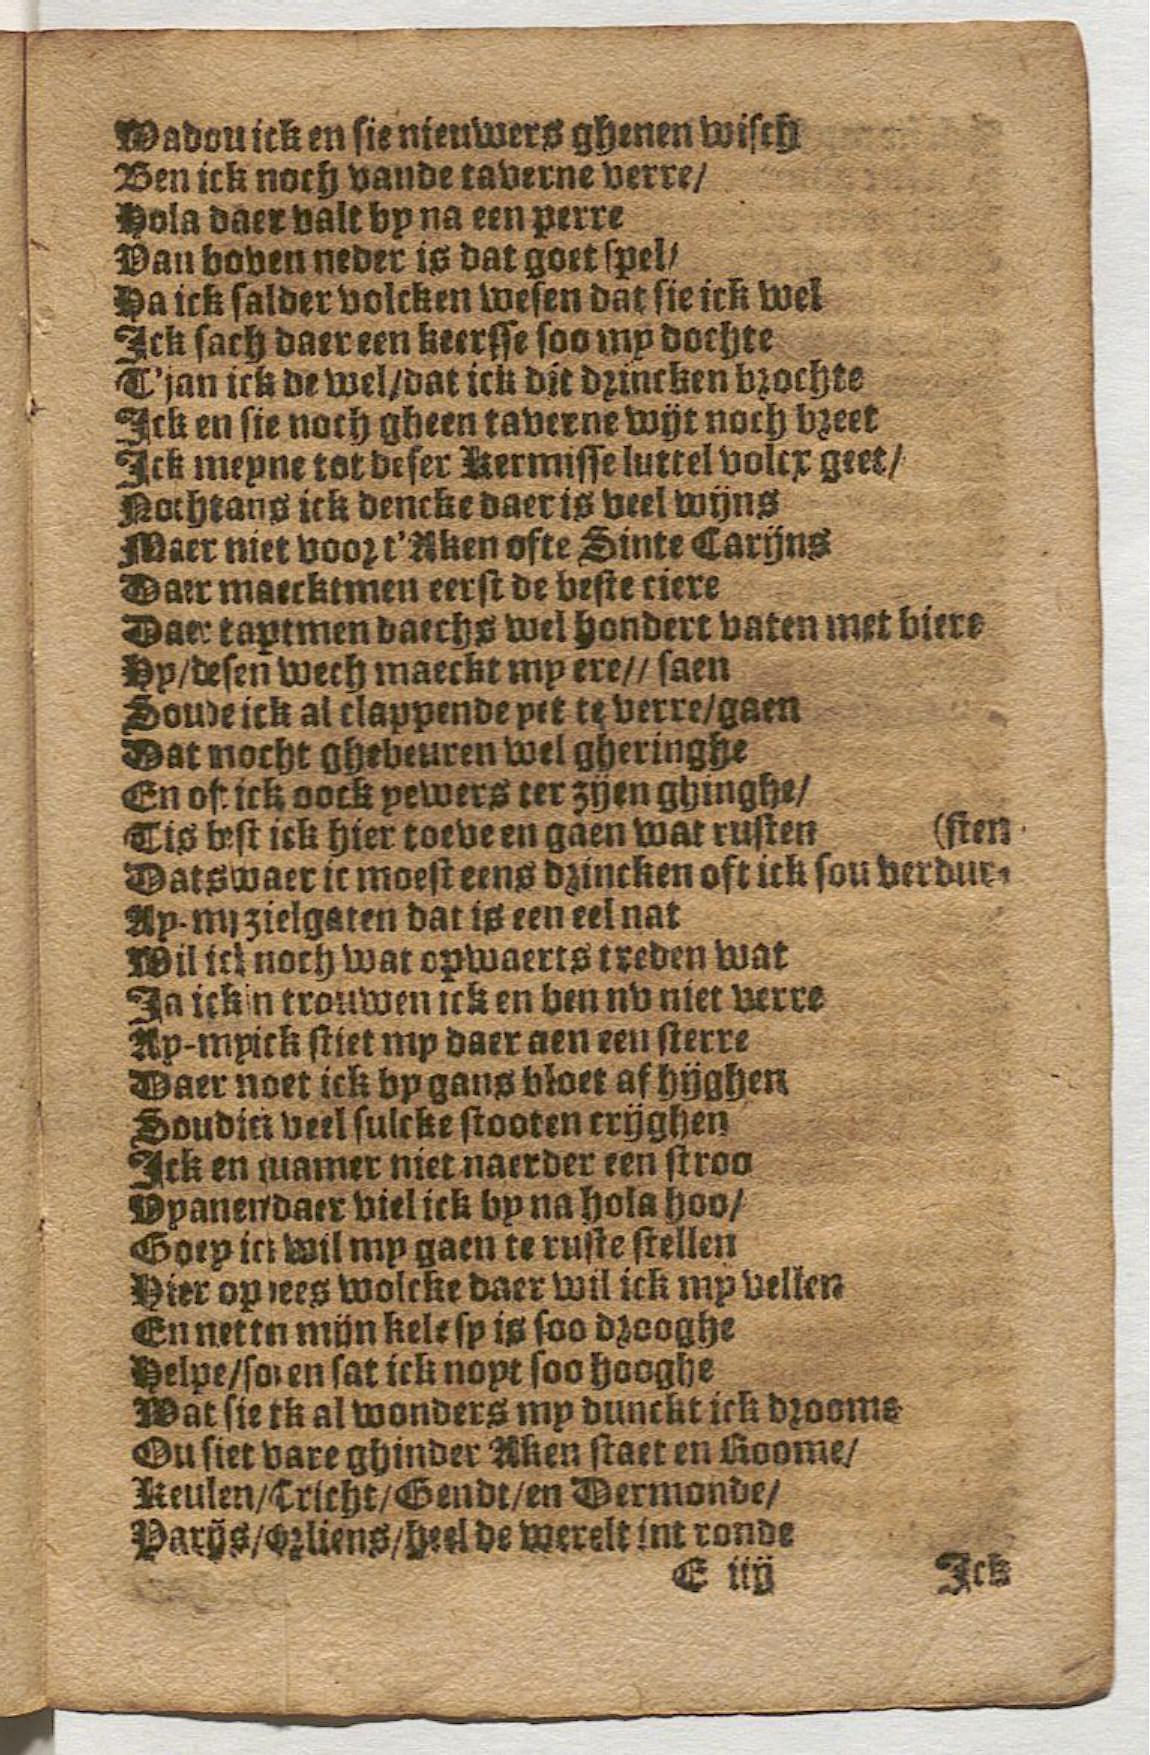 Wadou ick en sie nieuwers ghenen wisch
Ben ick noch vande taverne verre/
Hola daer valt by na een perre
Van boven neder is dat goet spel/
Ha ick salder volcken wesen dat sie ick wel
Ick sach daer een keersse soo my dochte
T'jan ick de wel/dat ick dit drincken brochte
Ick en sie noch gheen taverne wijt noch breet
Ick meyne tot deser Kermisse luttel volcx geet/
Nochtans ick dencke daer is veel wijns
Maer niet voor t'Aken ofte Sinte Carijns
Daer maecktmen eerst de beste ciere
Daer taptmen daechs wel hondert vaten met biere
Hy/desen wech maeckt my ere// saen
Soude ick al clappende yet te verre/gaen
Dat mocht ghebeuren wel gheringhe
En oft ick oock yewers ter zijen ghinghe/
Tis best ick hier toeve en gaen wat rusten (sten
Datswaer ic moest eens drincken oft ick sou verdur-
Ay-my zielgaten dat is een eel nat
Wil ick noch wat opwaerts treden wat
Ja ick in trouwen ick en ben nv niet verre
Ay-my ick stiet my daer aen een sterre
Daer noet ick by gans bloet af hijghen
Soudick veel sulcke stooten crijghen
Ick en quamer niet naerder een stroo
Vyanen/daer viel ick by na hola hoo/
Goey ick wil my gaen te ruste stellen
Hier op dees wolcke daer wil ick my vellen
En netten mijn kele sy is soo drooghe
Helpe/soo en sat ick noyt soo hooghe
Wat sie ik al wonders my dunckt ick droome
Ou siet vare ghinder Aken staet en Roome/
Keulen/Tricht/Gendt/en Dermonde/
Parijs/Orliens/heel de werelt int ronde
E iij Ick